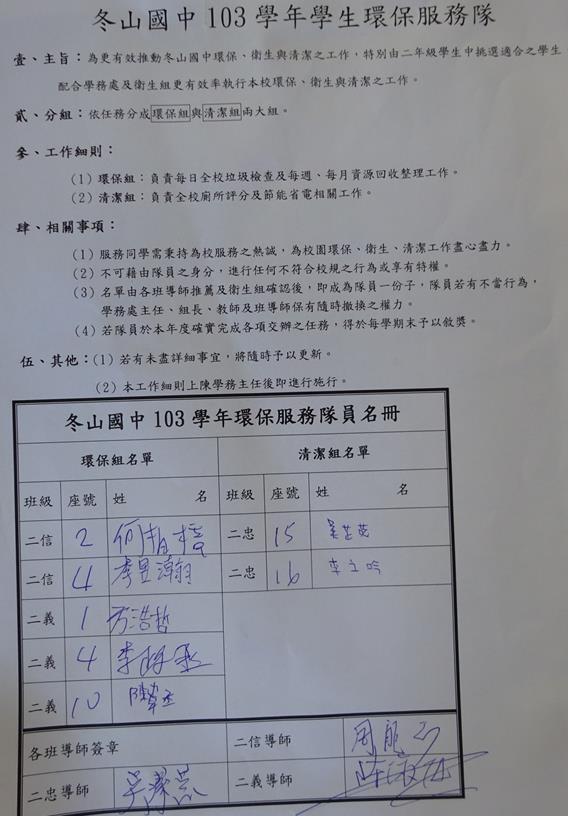 冬山國中 103 學年學生環保服務隊
壹、主旨：為更有效推動冬山國中環保、衛生與清潔之工作，特別由二年級學生中挑選適合之學生，
配合學務處及衛生組更有效率執行本校環保、衛生與清潔之工作。
貳、分組：依任務分成環保組與清潔組兩大組。
參、工作細則：
(1) 環保組：負責每日全校垃圾檢查及每週、每月資源回收整理工作。
(2) 清潔組：負責全校廁所評分及節能省電相關工作。
肆、相關事項：
(1) 服務同學需秉持為校服務之熱誠，為校園環保、衛生、清潔工作盡心盡力。
(2) 不可藉由隊員之身分，進行任何不符合校規之行為或享有特權。
(3) 名單由各班導師推薦及衛生組確認後，即成為隊員一份子，隊員若有不當行為，
學務處主任、組長、教師及班導師保有隨時撤換之權力。
(4) 若隊員於本年度確實完成各項交辦之任務，得於每學期末予以敘獎。
伍、其他：(1) 若有未盡詳細事宜，將隨時予以更新。
(2) 本工作細則上陳學務主任後即進行施行。
冬山國中 103 學年環保服務隊員名冊
環保組名單 清潔組名單
班級 座號 姓 名 班級 座號 姓 名
二信 2 二忠 15
二信 4 李昱瀚 二忠 16 李立吟
二義 1 方浩哲
二義 4 李
二義 10 陳
各班導師簽章 二信導師 周
二忠導師 吳 二義導師 陳